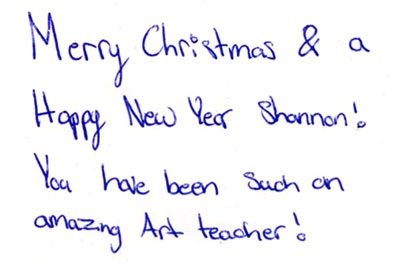 Merry Christmas & a
Happy New Year Shannon!
You have been such an
amazing Art teacher!